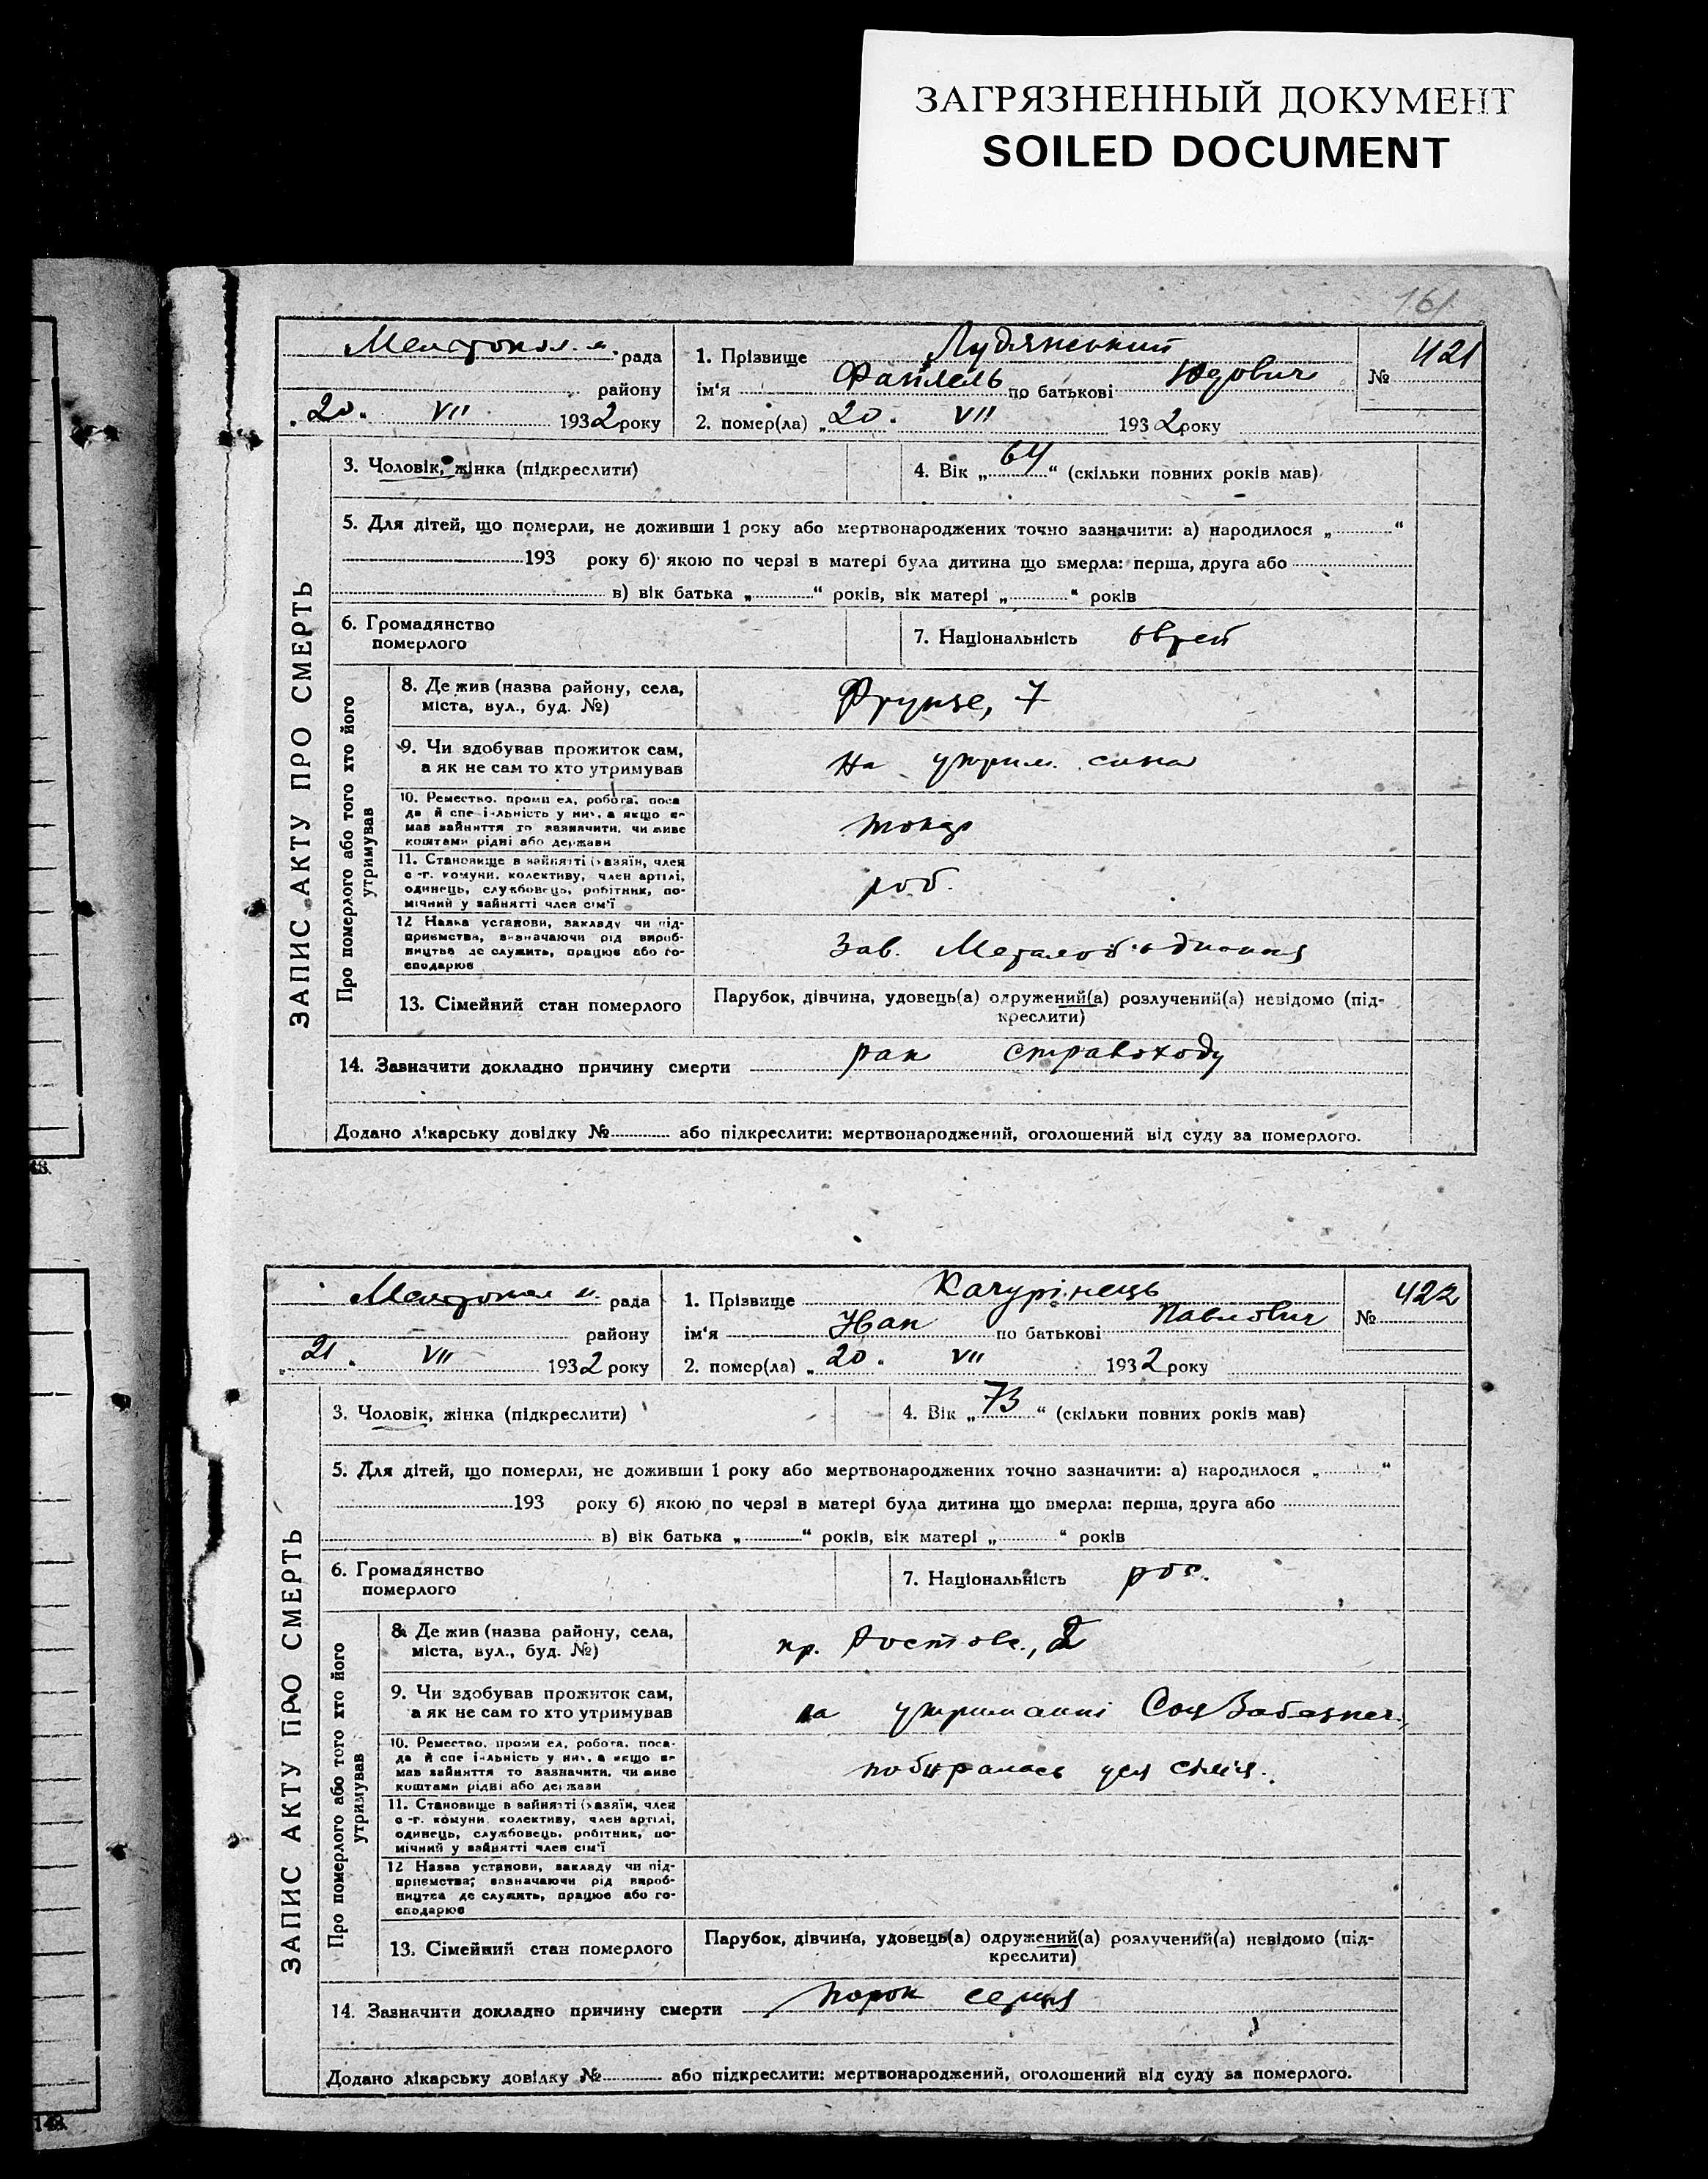 ЗАГРЯЗНЕННЫЙ ДОКУМЕНТ
SOILED DOCUMENT
161
Мелітопол. м. рада
району
„20“ VII 1932 року
1. Прізвище Лудянський
ім‘я Файлель по батькові Юдович
2. помер(ла) „20“ VII 1932 року
№ 421
ЗАПИС АКТУ ПРО СМЕРТЬ
3. Чоловік, жінка (підкреслити)
4. Вік „64“ (скільки повних років мав)
5. Для дітей, що померли, не доживши 1 року або мертвонароджених точно зазначити: а) народилося „ “
193 року б) якою по черзі в матері була дитина що вмерла: перша, друга або
в) вік батька „ “ років, вік матері „ “ років
6. Громадянство
померлого
7. Національність еврей
Про померлого або того хто його
утримував
8. Де жив (назва району, села,
міста, вул., буд. №)
Фрунзе, 7
9. Чи здобував прожиток сам,
а як не сам то хто утримував
на утрим. сина
10. Ремество, промисел, робота, поса
да й спеціальність у них, а якщо не
мав зайняття то зазначити, чи живе
коштами рідні або держави
токар
11. Становище в зайнятті (хазяїн, член
с.-г. комуни, колективу, член артілі,
одинець, службовець, робітник, по-
мічний у зайнятті член сім‘ї
роб.
12 Назва установи, закладу чи під-
приємства, визначаючи рід вироб-
ництва де служить, працює або го-
сподарює
Зав.
13. Сімейний стан померлого
Парубок, дівчина, удовець(а) одружений(а) розлучений(а) невідомо (під-
креслити)
14. Зазначити докладно причину смерти рак стравоходу
Додано лікарську довідку № або підкреслити: мертвонароджений, оголошений від суду за померлого.
Мелітопол м. рада
району
„21“ VII 1932 року
1. Прізвище Качурінець
ім‘я Іван по батькові Павлович
2. помер(ла) „20“ VII 1932 року
№ 422
ЗАПИС АКТУ ПРО СМЕРТЬ
3. Чоловік, жінка (підкреслити)
4. Вік „73“ (скільки повних років мав)
5. Для дітей, що померли, не доживши 1 року або мертвонароджених точно зазначити: а) народилося „ “
193 року б) якою по черзі в матері була дитина що вмерла: перша, друга або
в) вік батька „ “ років, вік матері „ “ років
6. Громадянство
померлого
7. Національність рос.
Про померлого або того хто його
утримував
8. Де жив (назва району, села,
міста, вул., буд. №)
пр. Ростовс., 2
9. Чи здобував прожиток сам,
а як не сам то хто утримував
на утриманні СоцЗабезпеч.
10. Ремество, промисел, робота, поса-
да й спеціальність у них, а якщо не
мав зайняття то зазначити, чи живе
коштами рідні або держави
11. Становище в зайнятті (хазяїн, член
с.-г. комуни, колективу, член артілі,
одинець, службовець, робітник, по-
мічний у зайнятті член сім‘ї
12 Назва установи, закладу чи під-
приємства, визначаючи рід вироб-
ництва де служить, працює або го-
сподарює
13. Сімейний стан померлого
Парубок, дівчина, удовець(а) одружений(а) розлучений(а) невідомо (під-
креслити)
14. Зазначити докладно причину смерти порок серця
Додано лікарську довідку № або підкреслити: мертвонароджений, оголошений від суду за померлого.
48.
148.